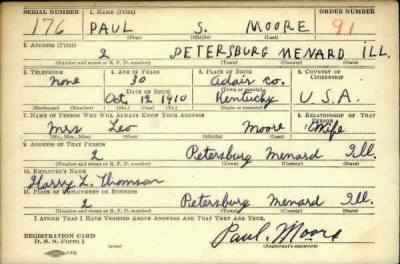 SERIAL NUMBER 1. NAME (Print) ORDER NUMBER
176 PAUL S. MOORE 91
(First) (Middle) (Last)
2. ADDRESS (Print)
2 PETERSBURG MENARD ILL.
(Number and street or R. F. D. number) (Town) (County) (State)
3. TELEPHONE 4. AGE IN YEARS 5. PLACE OF BIRTH 6. COUNTRY OF CITIZENSHIP
None 30 Adair Co.
DATE OF BIRTH
Oct. 12 1910 Kentucky U.S.A.
(Exchange) (Number) (Mo.) (Day) (Yr.) (State or country)
7. NAME OF PERSON WHO WILL ALWAYS KNOW YOUR ADDRESS 8. RELATIONSHIP OF THAT PERSON
Mrs Leo Moore Wife
(Mr., Mrs., Miss) (First) (Middle) (Last)
9. ADDRESS OF THAT PERSON
2 Petersburg Menard Ill.
(Number and street or R. F. D. number) (Town) (County) (State)
10. EMPLOYER'S NAME
Harry L. Thomson
11. PLACE OF EMPLOYMENT OR BUSINESS
2 Petersburg Menard Ill.
(Number and street or R. F. D. number) (Town) (County) (State)
I AFFIRM THAT I HAVE VERIFIED ABOVE ANSWERS AND THAT THEY ARE TRUE.
REGISTRATION CARD
D. S. S. Form 1 Paul. Moore
(Registrant's signature)